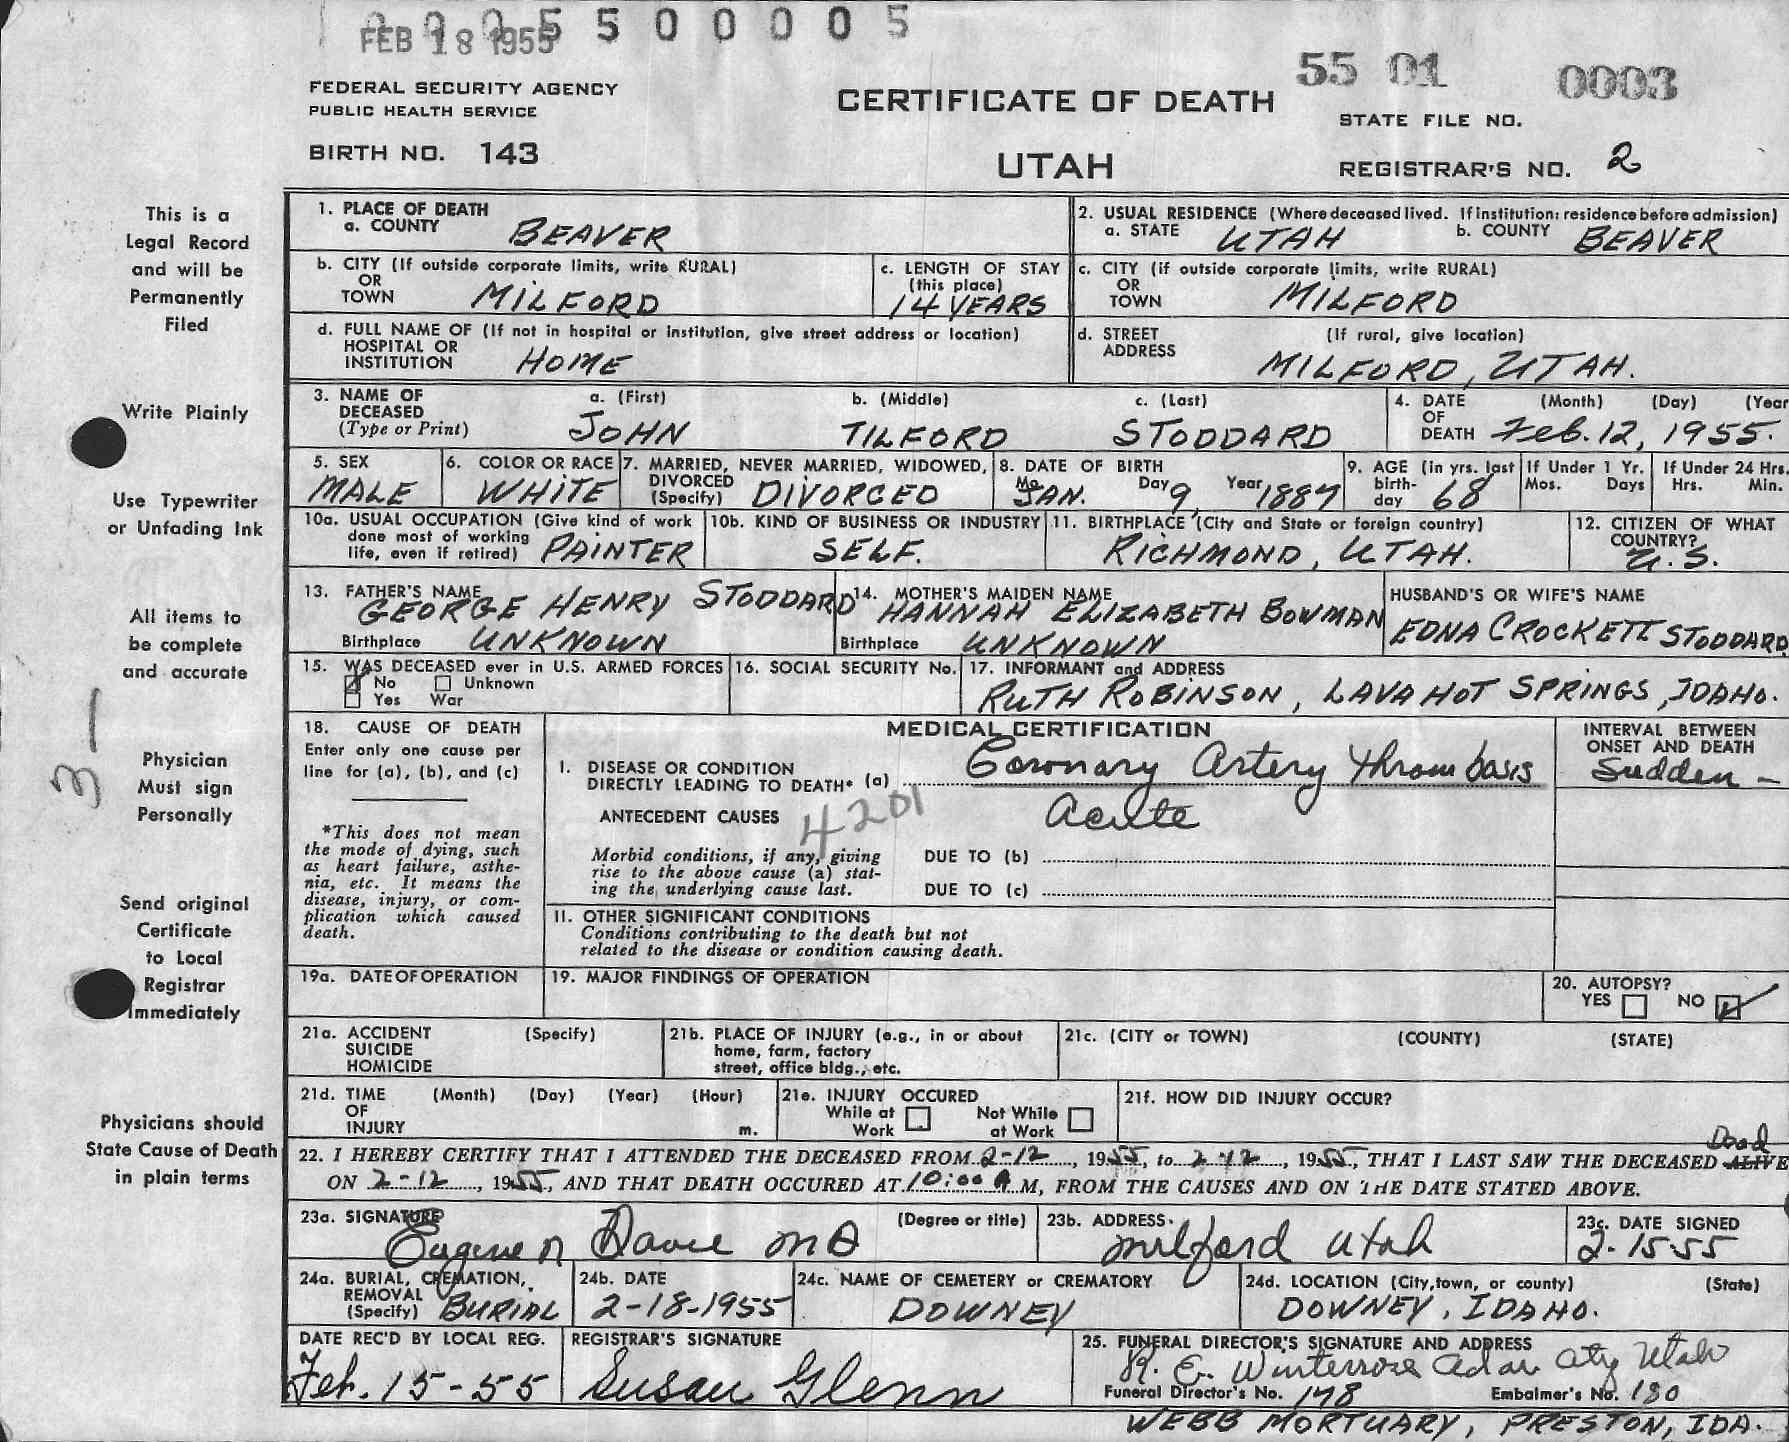 0 0 0 5 5 0 0 0 0 5
FEB 18 1955
55 01 0003
FEDERAL SECURITY AGENCY
PUBLIC HEALTH SERVICE
CERTIFICATE OF DEATH
STATE FILE NO.
BIRTH NO. 143
UTAH
REGISTRAR'S NO. 2
This is a
Legal Record
and will be
Permanently
Filed
Write Plainly
Use Typewriter
or Unfading Ink
All items to
be complete
and accurate
31
Physician
Must sign
Personally
Send original
Certificate
to Local
Registrar
Immediately
Physicians should
State Cause of Death
in plain terms
1. PLACE OF DEATH
a. COUNTY BEAVER
2. USUAL RESIDENCE (Where deceased lived. If institution: residence before admission)
a. STATE UTAH b. COUNTY BEAVER
b. CITY (If outside corporate limits, write RURAL)
OR
TOWN MILFORD
c. LENGTH OF STAY
(this place)
14 YEARS
c. CITY (if outside corporate limits, write RURAL)
OR
TOWN MILFORD
d. FULL NAME OF (If not in hospital or institution, give street address or location)
HOSPITAL OR
INSTITUTION HOME
d. STREET (If rural, give location)
ADDRESS MILFORD, UTAH.
3. NAME OF DECEASED (Type or Print)
a. (First) b. (Middle) c. (Last)
JOHN TILFORD STODDARD
4. DATE OF DEATH (Month) (Day) (Year
Feb. 12, 1955.
5. SEX
MALE
6. COLOR OR RACE
WHITE
7. MARRIED, NEVER MARRIED, WIDOWED,
DIVORCED
(Specify) DIVORCED
8. DATE OF BIRTH
Mo. JAN. Day 9, Year 1887
9. AGE (in yrs. last
birth-
day 68
If Under 1 Yr.
Mos. Days
If Under 24 Hrs.
Hrs. Min.
10a. USUAL OCCUPATION (Give kind of work
done most of working
life, even if retired) PAINTER
10b. KIND OF BUSINESS OR INDUSTRY
SELF.
11. BIRTHPLACE (City and State or foreign country)
RICHMOND, UTAH.
12. CITIZEN OF WHAT
COUNTRY?
U.S.
13. FATHER'S NAME
GEORGE HENRY STODDARD
Birthplace UNKNOWN
14. MOTHER'S MAIDEN NAME
HANNAH ELIZABETH BOWMAN
Birthplace UNKNOWN
HUSBAND'S OR WIFE'S NAME
EDNA CROCKETT STODDARD
15. WAS DECEASED ever in U.S. ARMED FORCES
No Unknown
Yes War
16. SOCIAL SECURITY No.
17. INFORMANT and ADDRESS
RUTH ROBINSON, LAVA HOT SPRINGS, IDAHO.
18. CAUSE OF DEATH
Enter only one cause per
line for (a), (b), and (c)
*This does not mean
the mode of dying, such
as heart failure, asthe-
nia, etc. It means the
disease, injury, or com-
plication which caused
death.
MEDICAL CERTIFICATION
I. DISEASE OR CONDITION
DIRECTLY LEADING TO DEATH* (a) Coronary Artery Thrombosis
Acute
ANTECEDENT CAUSES
4201
Morbid conditions, if any, giving
rise to the above cause (a) stat-
ing the underlying cause last.
DUE TO (b)
DUE TO (c)
INTERVAL BETWEEN
ONSET AND DEATH
Sudden -
II. OTHER SIGNIFICANT CONDITIONS
Conditions contributing to the death but not
related to the disease or condition causing death.
19a. DATE OF OPERATION
19. MAJOR FINDINGS OF OPERATION
20. AUTOPSY?
YES NO
21a. ACCIDENT (Specify)
SUICIDE
HOMICIDE
21b. PLACE OF INJURY (e.g., in or about
home, farm, factory
street, office bldg., etc.
21c. (CITY or TOWN) (COUNTY) (STATE)
21d. TIME (Month) (Day) (Year) (Hour)
OF
INJURY m.
21e. INJURY OCCURED
While at Work Not While at Work
21f. HOW DID INJURY OCCUR?
22. I HEREBY CERTIFY THAT I ATTENDED THE DECEASED FROM 2-12, 1955, to 2-12, 1955, THAT I LAST SAW THE DECEASED ALIVE Dead
ON 2-12, 1955, AND THAT DEATH OCCURED AT 10:00 A M, FROM THE CAUSES AND ON THE DATE STATED ABOVE.
23a. SIGNATURE (Degree or title)
Eugene N Davie MD
23b. ADDRESS.
Milford Utah
23c. DATE SIGNED
2-15-55
24a. BURIAL, CREMATION,
REMOVAL
(Specify) BURIAL
24b. DATE
2-18-1955
24c. NAME OF CEMETERY or CREMATORY
DOWNEY
24d. LOCATION (City, town, or county) (State)
DOWNEY, IDAHO.
DATE REC'D BY LOCAL REG.
Feb. 15-55
REGISTRAR'S SIGNATURE
Susan Glenn
25. FUNERAL DIRECTOR'S SIGNATURE AND ADDRESS
R. E. Winterrose Cedar City Utah
Funeral Director's No. 148 Embalmer's No. 180
WEBB MORTUARY, PRESTON, IDA.